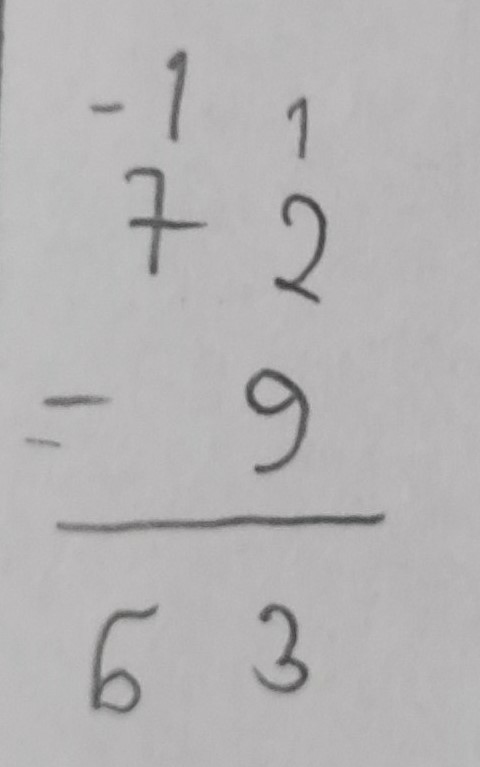 -1 1
7 2
- 9
6 3